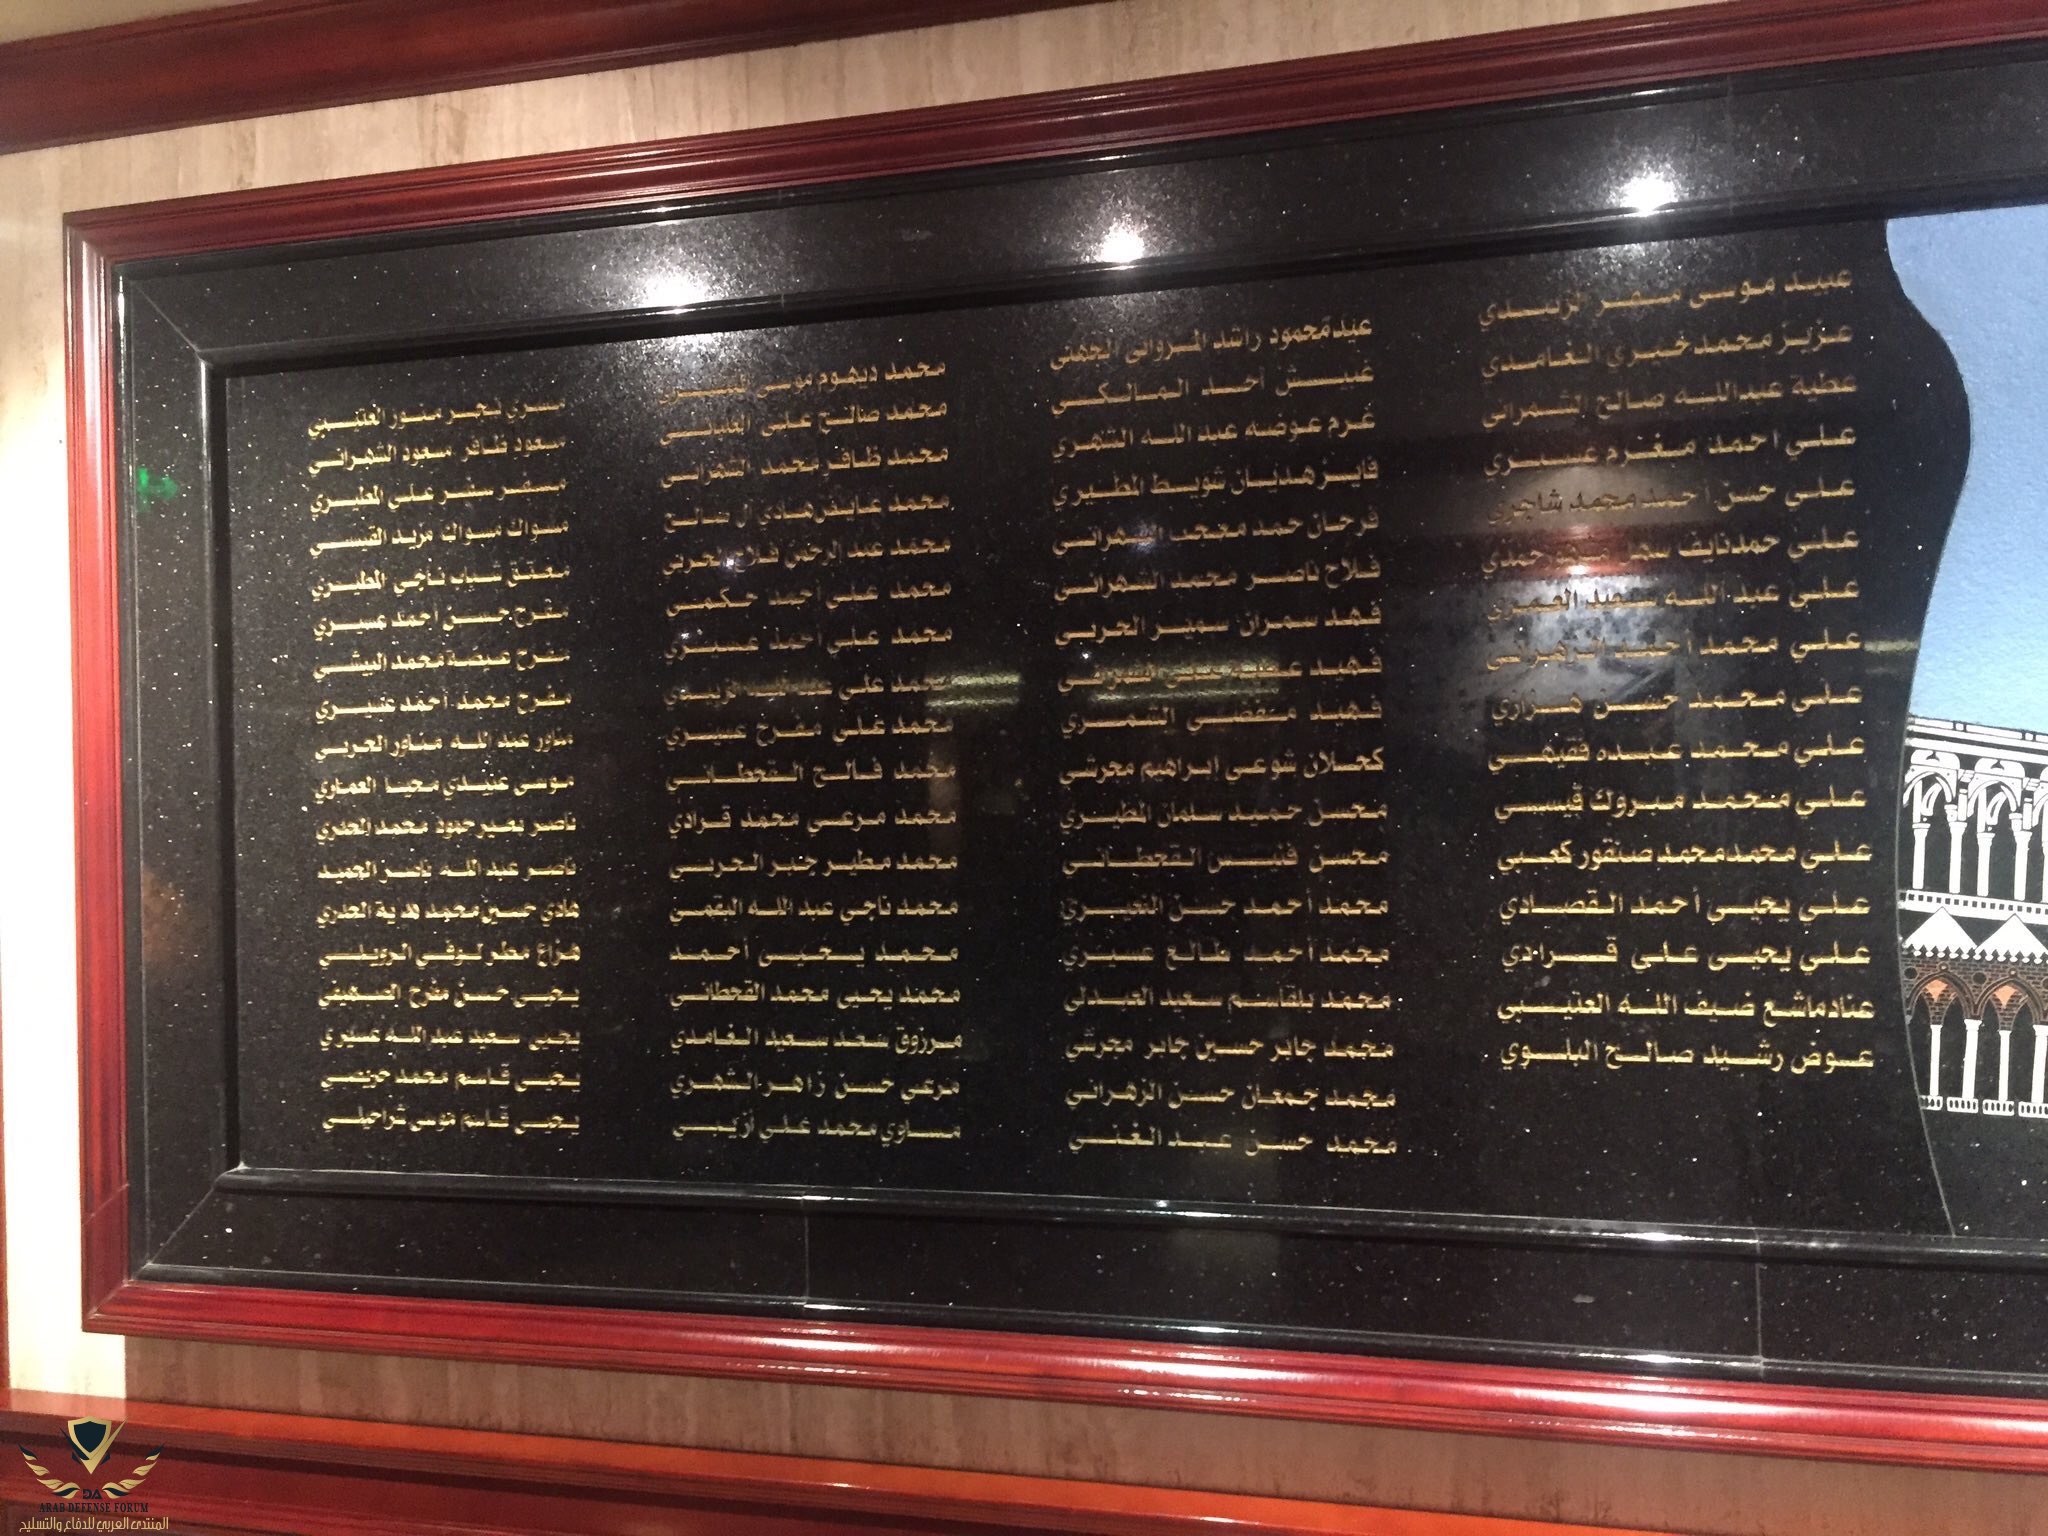 عبيد موسى مهر الزبيدي
عزيز محمد خيري الغامدي
عطية عبدالله صالح الشمراني
علي احمد مغرم عسيري
علي حسن احمد محمد شاجري
علي حمد نايف سهل
علي عبد الله سعيد العمري
علي محمد أحمد الزهراني
علي محمد حسن هزازي
علي محمد عبده فقيهي
علي محمد مبروك قيسي
علي محمد محمد صنقور كعبي
علي يحيى أحمد القصادي
علي يحيى علي قرادي
عناد ماشع ضيف الله العتيبي
عوض رشيد صالح البلوي
عيد محمود راشد المرواني الجهني
غبيش أحمد المالكي
غرم عوضه عبد الله الشهري
فايز هديان شويط المطيري
فرحان حمد معجب الشهراني
فلاح ناصر محمد الشهراني
فهد سمران سمير الحربي
فهيد عطية
فهيد منفضي الشمري
كحلان شوعي ابراهيم مجرشي
محسن حميد سلمان المطيري
محسن فنيس القحطاني
محمد أحمد حسن النعيري
محمد أحمد طالع عسيري
محمد بلقاسم سعيد العبدلي
محمد جابر حسين جابر مجرشي
محمد جمعان حسن الزهراني
محمد حسن عبد الغني
محمد ديهوم موسى
محمد صالح علي
محمد ظافر محمد الشهراني
محمد عايض هادي آل صالح
محمد عبد الرحمن فلاح الحربي
محمد علي أحمد حكمي
محمد علي احمد عسيري
محمد علي عبد الله الزبيدي
محمد علي مفرح عسيري
محمد فالح القحطاني
محمد مرعي محمد قرادي
محمد مطير جبر الحربي
محمد ناجي عبد الله البقمي
محمد يحيى أحمد
محمد يحيى محمد القحطاني
مرزوق سعد سعيد الغامدي
مرعي حسن زاهر الشهري
مساوي محمد علي أزيبي
مسري فجر منور العتيبي
مسعود ظافر مسعود الشهراني
مسفر سفر علي المطيري
مسواك مسواك مزيد القيسي
معتق شباب ناجي المطيري
مفرح حسن أحمد عسيري
مفرح عيضة محمد البيشي
مفرح محمد أحمد عسيري
مناور عبد الله مناور الحربي
موسى عنيدي محيا العماري
ناصر حمود محمد
ناصر عبد الله ناصر الحميد
هادي حسين محمد هدية
هزاع مطر لوفي الرويلي
يحيى حسن مفرح الصهيفي
يحيى سعيد عبد الله عسيري
يحيى قاسم محمد حريصي
يحيى قاسم موسى شراحيلي
DA
ARAB DEFENSE FORUM
المنتدى العربي للدفاع والتسليح